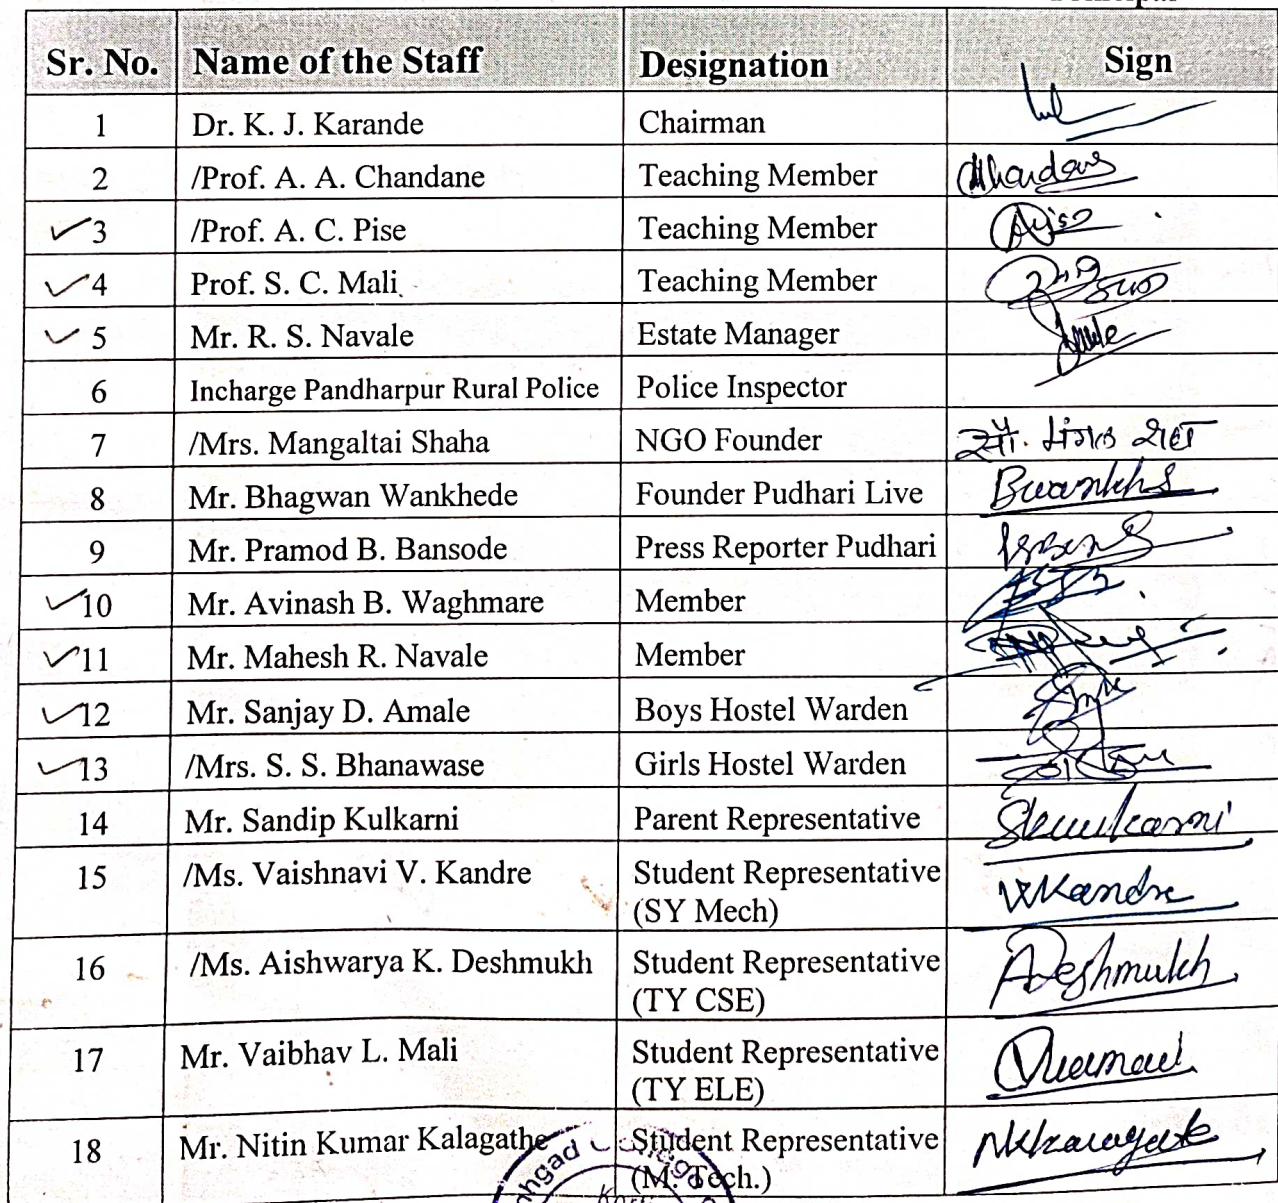 Principal
Sr. No. Name of the Staff Designation Sign
1 Dr. K. J. Karande Chairman
2 /Prof. A. A. Chandane Teaching Member
3 /Prof. A. C. Pise Teaching Member
4 Prof. S. C. Mali Teaching Member
5 Mr. R. S. Navale Estate Manager
6 Incharge Pandharpur Rural Police Police Inspector
7 /Mrs. Mangaltai Shaha NGO Founder सौ. मंगल शहा
8 Mr. Bhagwan Wankhede Founder Pudhari Live
9 Mr. Pramod B. Bansode Press Reporter Pudhari
10 Mr. Avinash B. Waghmare Member
11 Mr. Mahesh R. Navale Member
12 Mr. Sanjay D. Amale Boys Hostel Warden
13 /Mrs. S. S. Bhanawase Girls Hostel Warden
14 Mr. Sandip Kulkarni Parent Representative Skulkarni
15 /Ms. Vaishnavi V. Kandre Student Representative VVKandre
(SY Mech)
16 /Ms. Aishwarya K. Deshmukh Student Representative ADeshmukh
(TY CSE)
17 Mr. Vaibhav L. Mali Student Representative
(TY ELE)
18 Mr. Nitin Kumar Kalagathe Student Representative
(M. Tech.)